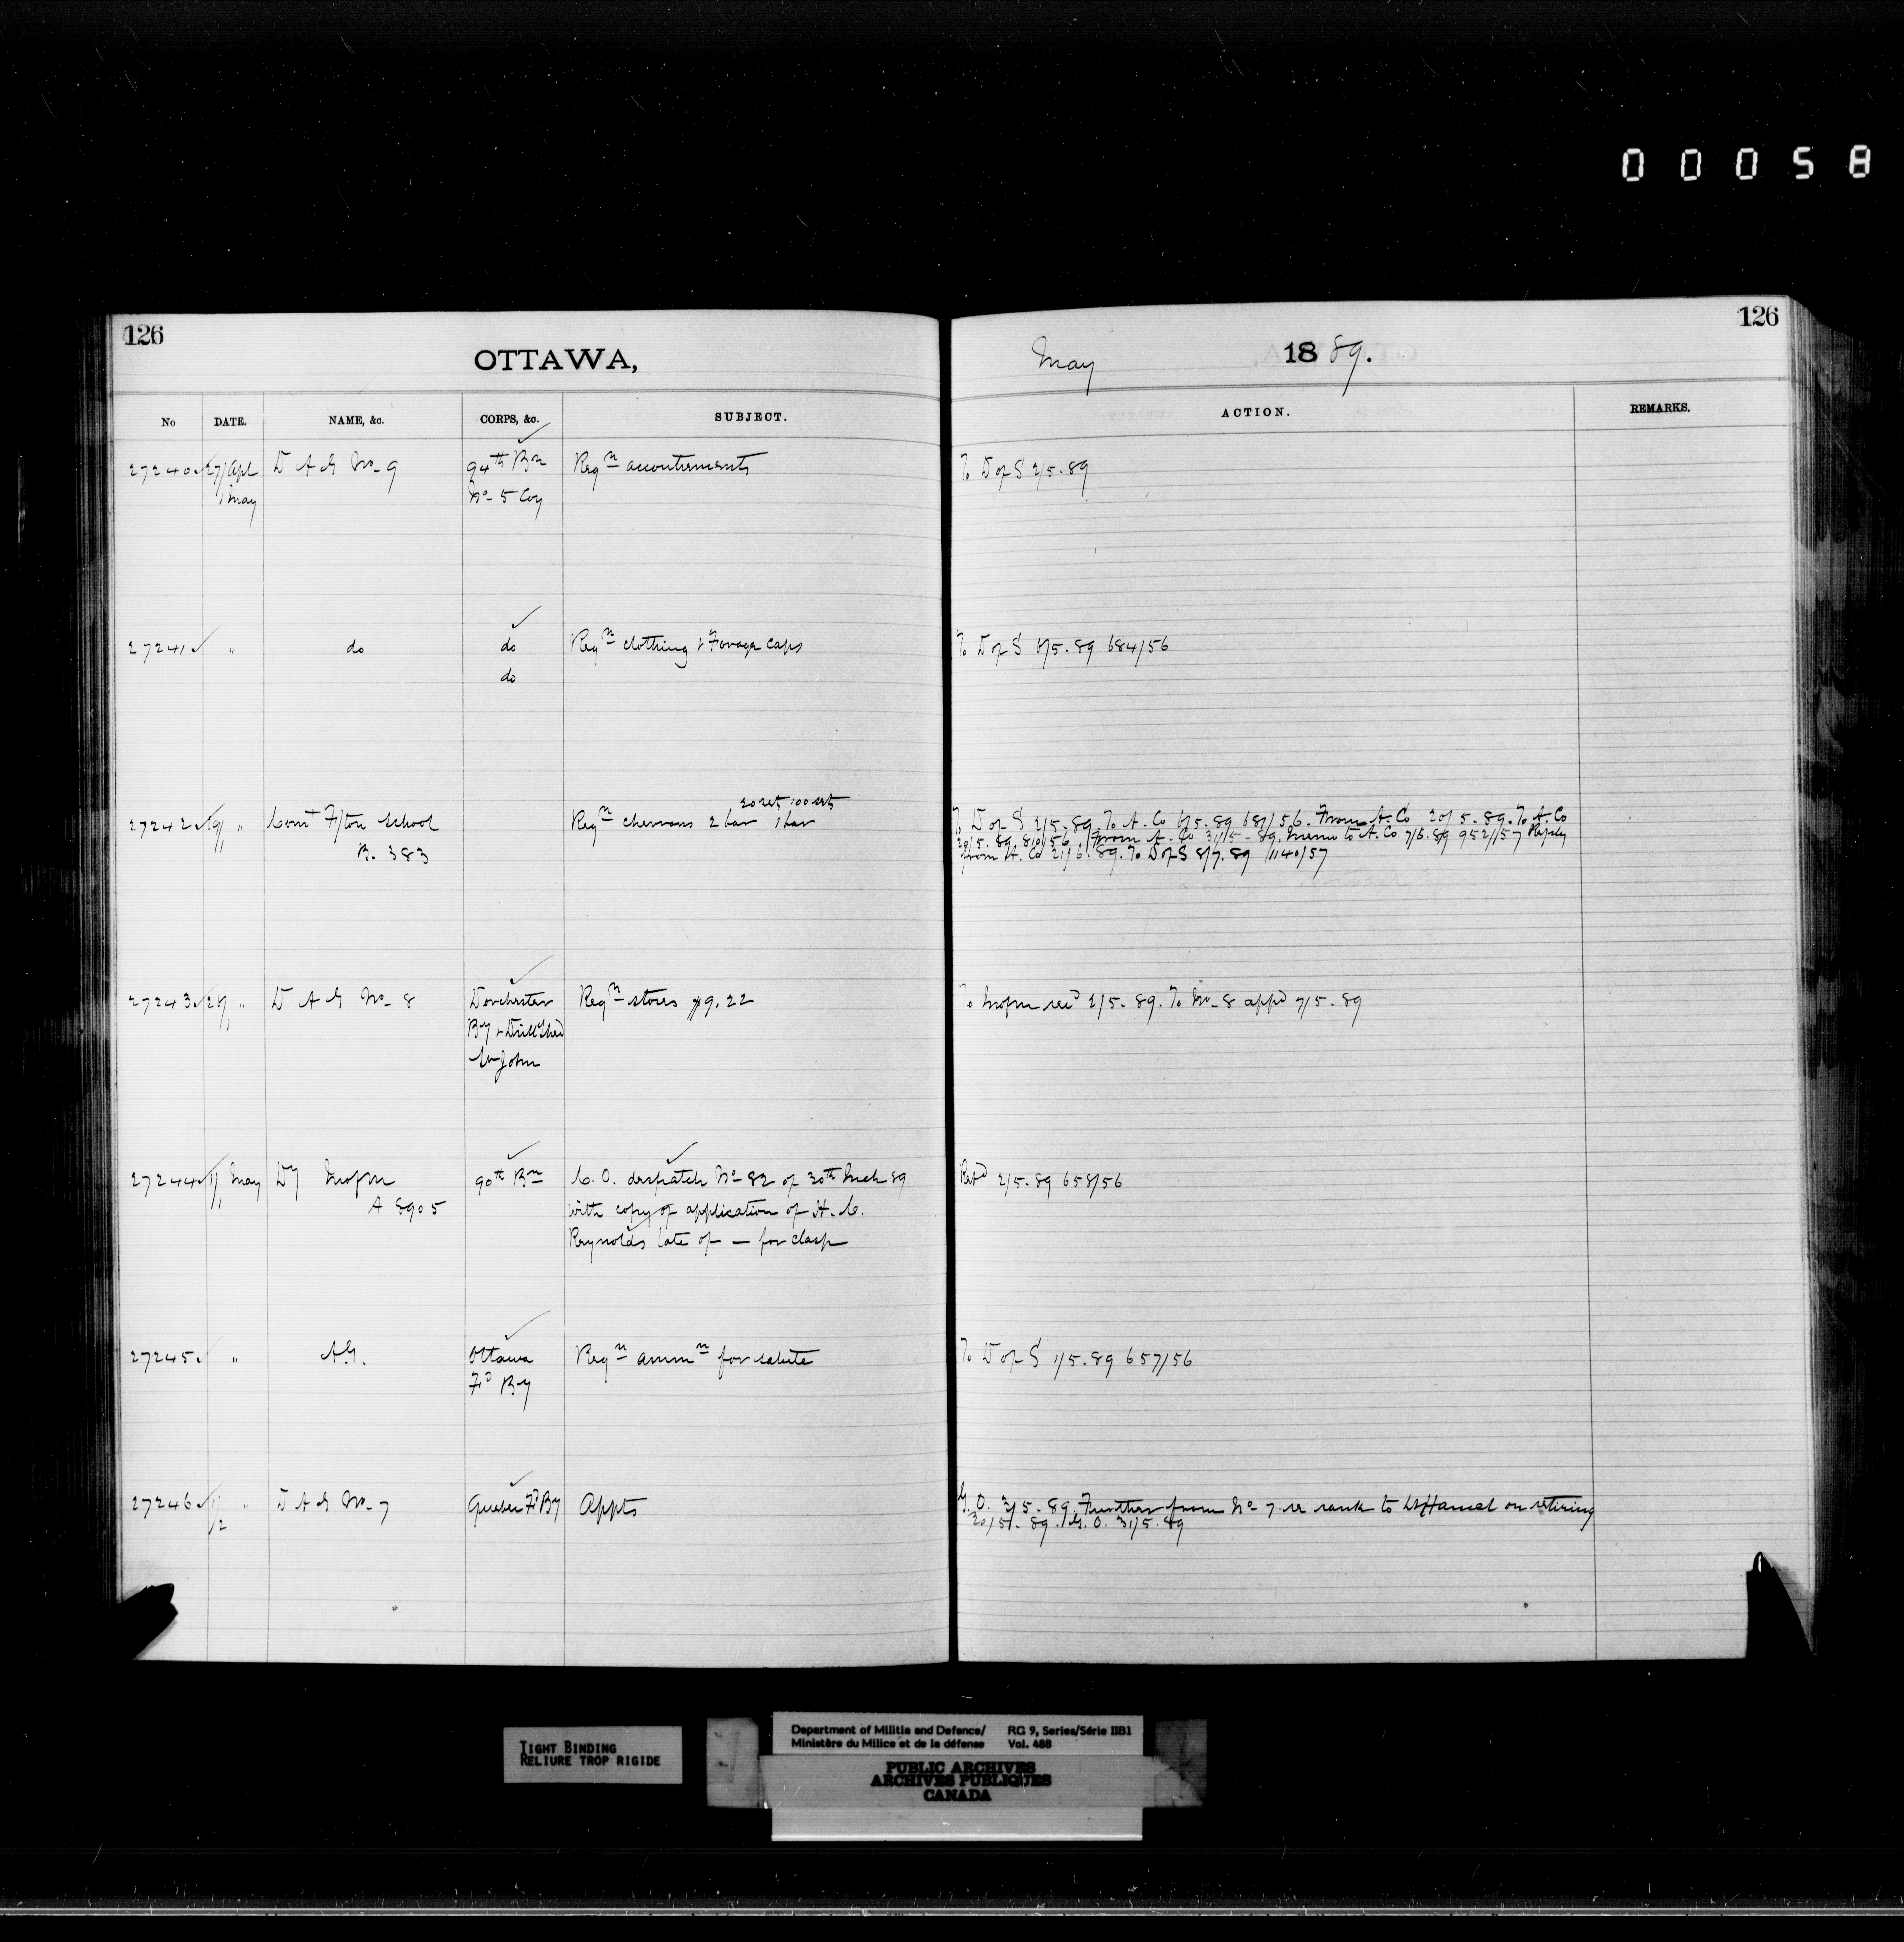 00058
126
OTTAWA,
May 1889.
126
No DATE. NAME, &c. CORPS, &c. SUBJECT. ACTION. REMARKS.
27240 27/Apl D A G No- 9 94th Bn Reqn accoutrements To D of S 2/5.89
1/May No- 5 Coy
27241 " do do Reqn clothing & Forage caps To D of S 6/5.89 684/56
do
20 sets 100 sets
27242 " Comt F/ton School Reqn chevrons 2 bar 1 bar To D of S 2/5.89. To A. Co 6/5.89 681/56. From A. Co 20/5.89. To A. Co
B. 383 20/5.89. 810/56. From A. Co 31/5.89. Memo to A. Co 7/6.89 952/57 Reply
from A. Co 21/6.89. To D of S 8/7.89 1140/57
27243 " D A G No- 8 Dorchester Reqn stores $9.22 To Mofm recd 2/5.89. To No- 8 appd 7/5.89
By & Drill Shed
St John
27244 1/May Dy Mofm 90th Bn C. O. despatch No 82 of 30th Mch 89 Retd 2/5.89 658/56
A 8905 with copy of application of H. C.
Reynolds late of — for clasp
27245 " A.G. Ottawa Reqn ammn for salute To D of S 1/5.89 657/56
Fd By
27246 1/ " D A G No- 7 Quebec Fd By Appts G. O. 3/5.89. Further from No 7 re rank to Hamel on retiring
/2 30/5.89. G. O. 31/5.89
TIGHT BINDING
RELIURE TROP RIGIDE
Department of Militia and Defence/ RG 9, Series/Série IIB1
Ministère du Milice et de la défense Vol. 488
PUBLIC ARCHIVES
ARCHIVES PUBLIQUES
CANADA